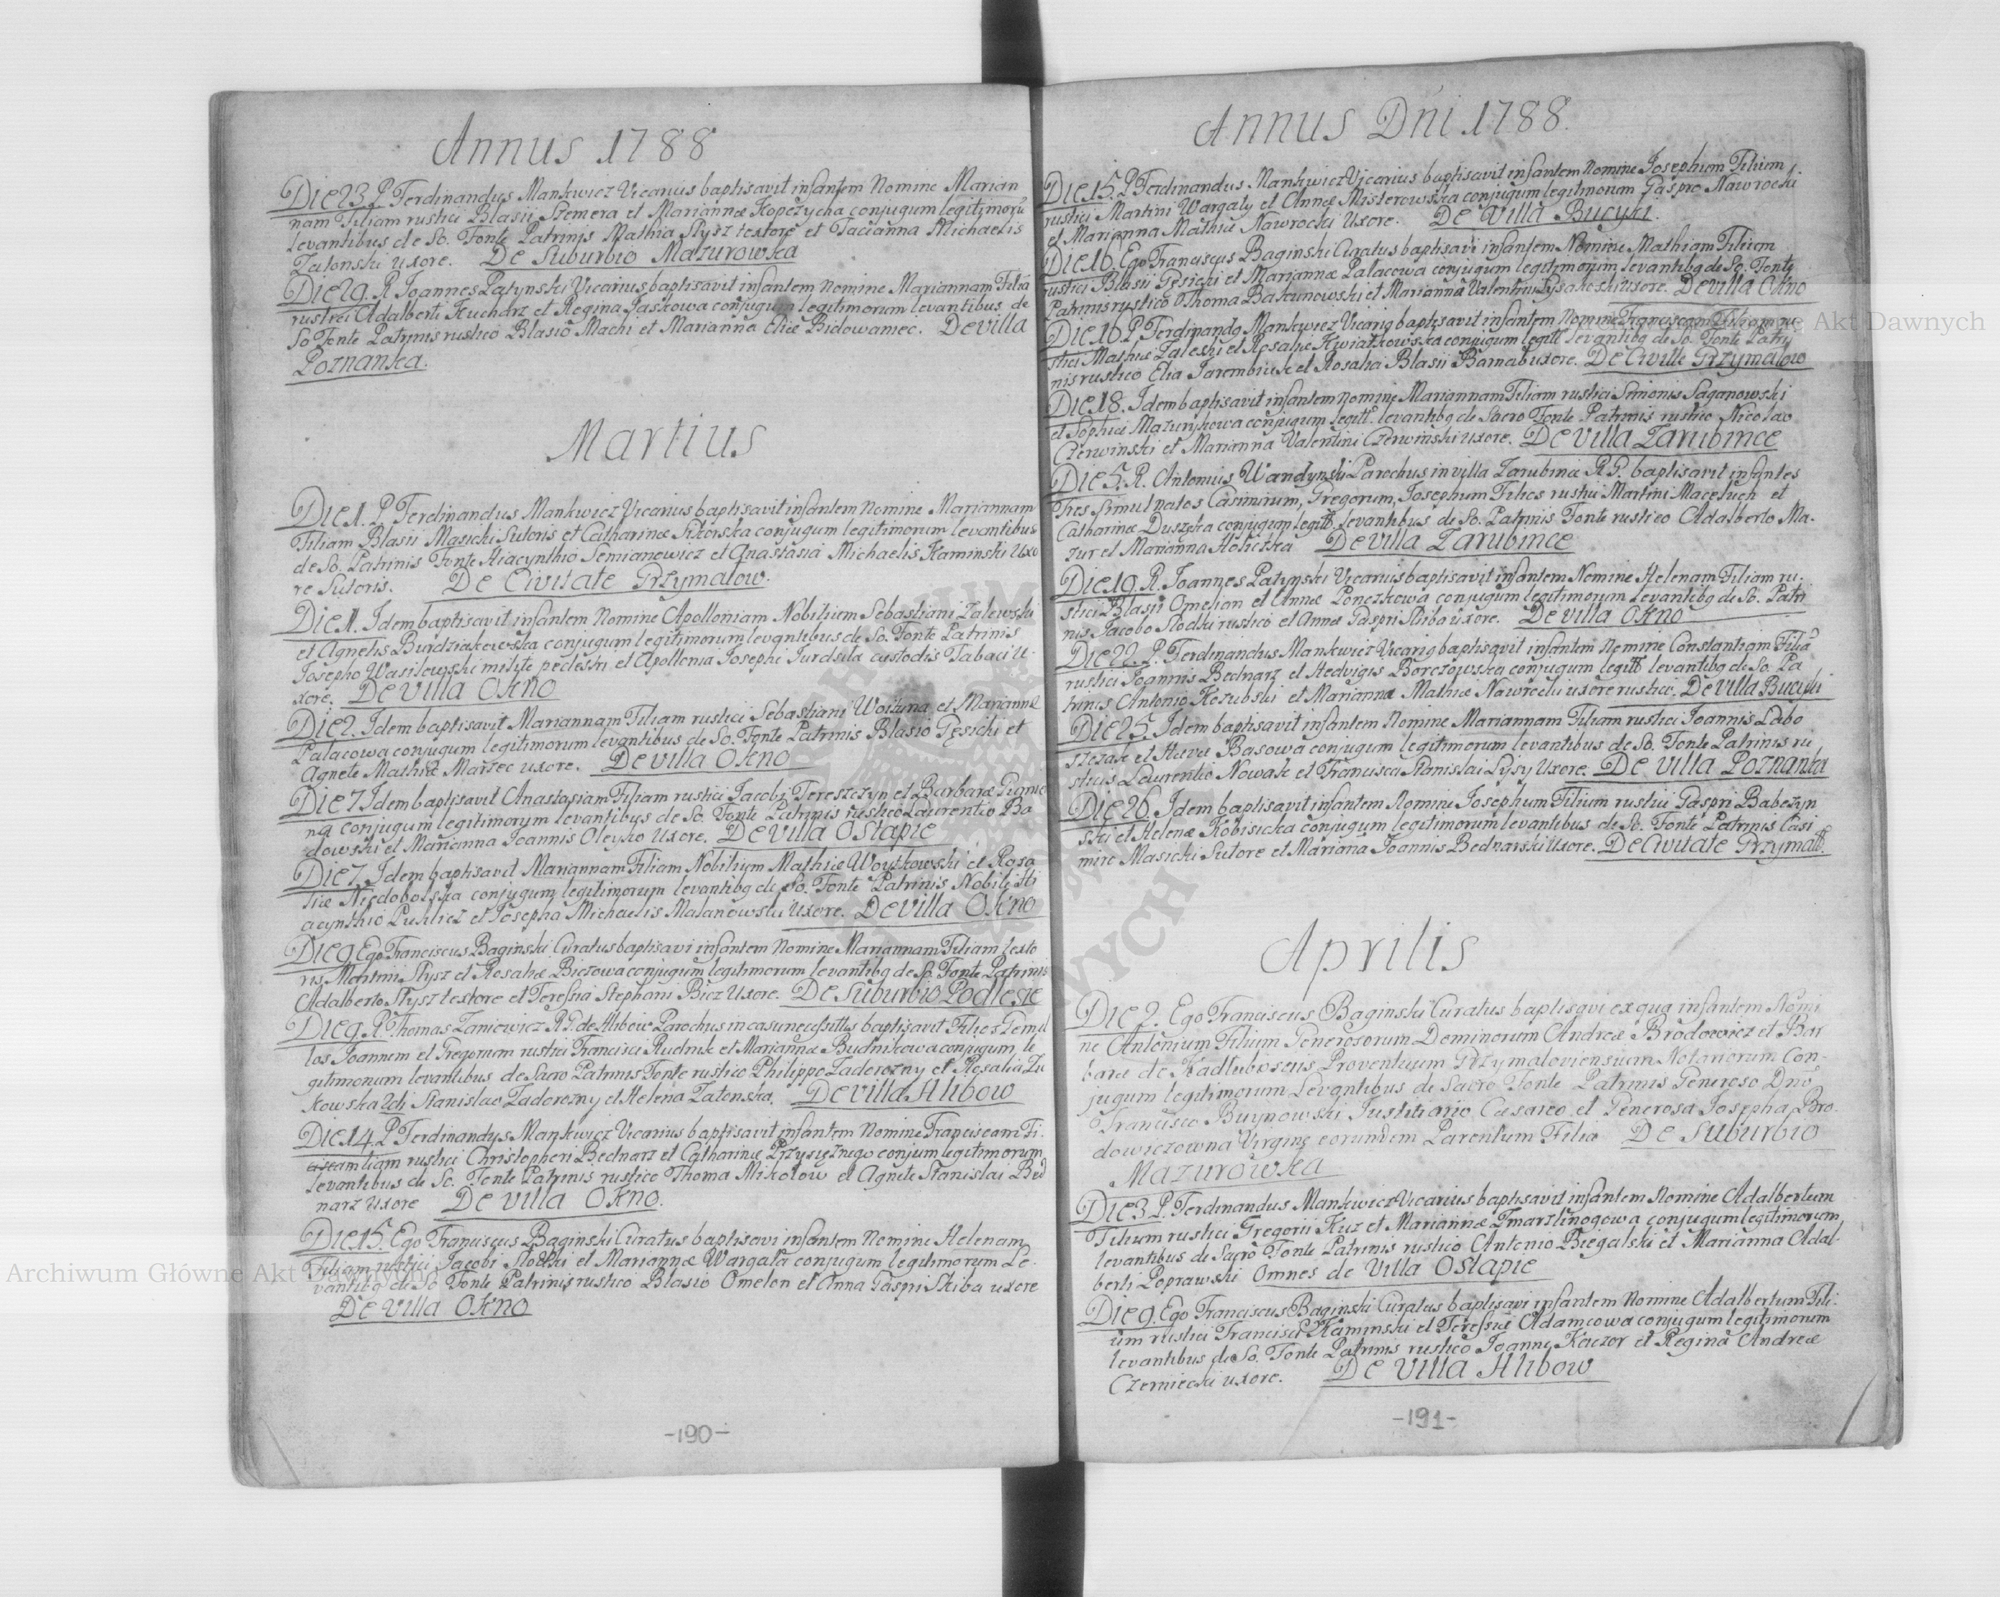 Annus 1788
Die 23. P. Ferdinandus Mankwicz Vicarius baptisavit infantem Nomine Marian
nam Filiam rustici Blasii Szemera et Mariannæ Kopczycha conjugum legitimoru
levantibus de So. Fonte Patrinis Mathia Stysz textore et Tacianna Michaelis
Zatonski uxore. De Suburbio Mazurowka
Die 29. R. Joannes Patynski Vicarius baptisavit infantem Nomine Mariannam Filiā
rustici Adalberti Kucharz et Regina Jaskowa conjugum legitimorum levantibus de
So Fonte Patrinis rustico Blasio Machi et Marianna Eliæ Bidowaniec. De villa
Poznanka.
Martius
Die 1. P. Ferdinandus Mankwicz Vicarius baptisavit infantem Nomine Mariannam
Filiam Blasii Masicki Sutoris et Catharinæ Sikorska conjugum legitimorum levantibus
de So. Patrinis Fonte Hiacynthio Semianewicz et Anastasia Michaelis Kaminski Uxo
re Sutoris. De Civitate Grzymałow.
Die 1. Idem baptisavit infantem Nomine Apolloniam Nobilium Sebastiani Zalewski
et Agnetis Burdziakowska conjugum legitimorum levantibus de So. Fonte Patrinis
Josepho Wasilewski milite pedestri et Apollonia Josephi Jurdsila custodis Tabaci u-
xore. De villa Okno
Die 2. Idem baptisavit Mariannam Filiam rustici Sebastiani Woituna et Mariannæ
Palacowa conjugum legitimorum levantibus de So. Fonte Patrinis Blasio Gęsicki et
Agnete Mathiæ Marzec uxore. De villa Okno
Die 7. Idem baptisavit Anastasiam Filiam rustici Jacobi Tereszczyn et Barbaræ
na conjugum legitimorum levantibus de So. Fonte Patrinis rustico Laurentio Ba
dowski et Marianna Joannis Oleyko Uxore. De villa Ostapie
Die 7. Idem baptisavit Mariannam Filiam Nobilium Mathiæ Woytkowski et Rosa
liæ Niedobolska conjugum legitimorum levantibq de So. Fonte Patrinis Nobile Hi
acynthio Puklicz et Josepha Michaelis Malanowski Uxore. De Villa Okno
Die 9 Ego Franciscus Baginski Curatus baptisavi infantem Nomine Mariannam Filiam texto
ris Martini Stysz et Rosaliæ Biczowa conjugum legitimorum levantibq de So Fonte Patrinis
Adalberto Stysz textore et Teressia Stephani Bicz Uxore. De Suburbio Podlesie
Die 9. R. Thomas Zaniewicz R.G. de Hlibow Parochus in casu necessittis baptisavit Filios Gemel
los Joannem et Gregorium rustici Francisci Rudnik et Mariannæ Budnikowa conjugum le
gitimorum levantibus de Sacro Patrinis Fonte rustico Philippo Zaderozny et Rosalia Zu
kowska 2di Stanislao Zaderozny et Helena Zatonska. De villa Hlibow
Die 14. P. Ferdinandus Mankwicz Vicarius baptisavit infantem Nomine Franciscam Fi-
liam rustici Christopheri Bednarz et Catharinæ Przysięznego conjum legitimorum
levantibus de So. Fonte Patrinis rustico Thoma Mikołow et Agnete Stanislai Bed
narz Uxore De villa Okno.
Die 15. Ego Franciscus Baginski Curatus baptisavi infantem Nomine Helenam
Filiam rustici Jacobi Słodki et Mariannæ Wargala conjugum legitimorum Le-
vantibq de So. Fonte Patrinis rustico Blasio Omelon et Anna Gaspri Skiba uxore
De villa Okno
-190-
Annus Dni 1788.
Die 15. P Ferdinandus Mankwicz Vicarius baptisavit infantem Nomine Josephum Filium
rustici Martini Wargaly et Annæ Misterowska conjugum legitimorum Gaspro Nawrocki
et Marianna Mathiæ Nawrocki Uxore. De Villa Bucyki.
Die 16. Ego Franciscus Baginski Curatus baptisavi infantem Nomine Mathiam Filium
rustici Blasii Gesicki et Mariannæ Palacowa conjugum legitimorum levantibq de So. Fonte
Patrinis rustico Thoma Bakunowski et Marianna Valentini Lysakoski uxore. De villa Okno
Die 16 P. Ferdinandq Mankwicz Vicariq baptisavit infantem Nomine Franciscam Filiam ru
stici Mathiæ Zaleski et Rosaliæ Kwiatkowska conjugum legitt levantibq de So. Fonte Patri
nis rustico Elia Jarembiuk et Rosalia Blasii Barnab uxore. De Civitte Grzymalow
Die 18. Idem baptisavit infantem Nomine Mariannam Filiam rustici Simonis Saganowski
et Sophiæ Mazurykowa conjugum legitt. levantibq de Sacro Fonte Patrinis rustico Nicolao
Czerwinski et Marianna Valentini Czerwinski uxore. De villa Zarubince
Die 5. R. Antonius Wandynski Parochus in villa Zarubinæ R.G. baptisavit infantes
Tres simul natos Casimirum, Gregorum, Josephum Filios rustici Martini Maceluch et
Catharinæ Duszka conjugum legitt. levantibus de So. Patrinis Fonte rustico Adalberto Ma-
zur et Marianna Holiczka De villa Zarubince
Die 19. R. Joannes Patynski Vicarius baptisavit infantem Nomine Helenam Filiam ru-
stici Blasii Omelian et Annæ Ponczkowa conjugum legitimorum levantibq de So. Patri
nis Jacobo Słodki rustico et Anna Gaspri Skiba uxore. De villa Okno
Die 22. P. Ferdinandus Mankwicz Vicariq baptisavit infantem Nomine Constantiam Filiā
rustici Joannis Bednarz et Hedvigis Borczowska conjugum legitt levantibq de So. Pa
trinis Antonio Kozubski et Marianna Mathiæ Nawrocki uxore rustico. De villa Bucyki
Die 25. Idem baptisavit infantem Nomine Mariannam Filiam rustici Joannis Labo
szczak et Hevæ Basowa conjugum legitimorum levantibus de So. Fonte Patrinis ru
sticus Laurentio Nowak et Francisca Stanislai Lysy Uxore. De villa Poznanka
Die 26. Idem baptisavit infantem Nomini Josephum Filium rustici Gaspri Babczyn
ski et Helenæ Kobisicka conjugum legitimorum levantibus de So. Fonte Patrinis Casi
miro Masicki Sutore et Mariana Joannis Bednarski Uxore. De Civitate Grzymałł.
Aprilis
Die 2. Ego Franciscus Baginski Curatus baptisavi ex aqua infantem Nomi
ne Antonium Filium Generosorum Dominorum Andreæ Brodowicz et Bar
baræ de Kadlubiscus Proventuum Grzymaloviensium Notariorum Con-
jugum legitimorum Levantibus de Sacro Fonte Patrinis Generoso Dnō
Francisco Buynowski Justitiario Causaeo et Generosa Josepha Bro-
dowiczowna Virgine eorumdem Parentum Filia De Suburbio
Mazurowka
Die 3. P. Ferdinandus Mankwicz Vicarius baptisavit infantem Nomine Adalbertum
Filium rustici Gregorii Kuz et Mariannæ Zmarzlinogowa conjugum legitimorum
levantibus de Sacro Fonte Patrinis rustico Antonio Biegalski et Marianna Adal-
berti Poprawski Omnes de Villa Ostapie
Die 9. Ego Franciscus Baginski Curatus baptisavi infantem Nomine Adalbertum Fili-
um rustici Francisci Kaminski et Teressiæ Adamcowa conjugum legitimorum
levantibus de So. Fonte Patrinis rustico Joanne Kaczor et Regina Andreæ
Czerniecki uxore. De villa Hlibow
-191-
Archiwum Główne Akt Dawnych